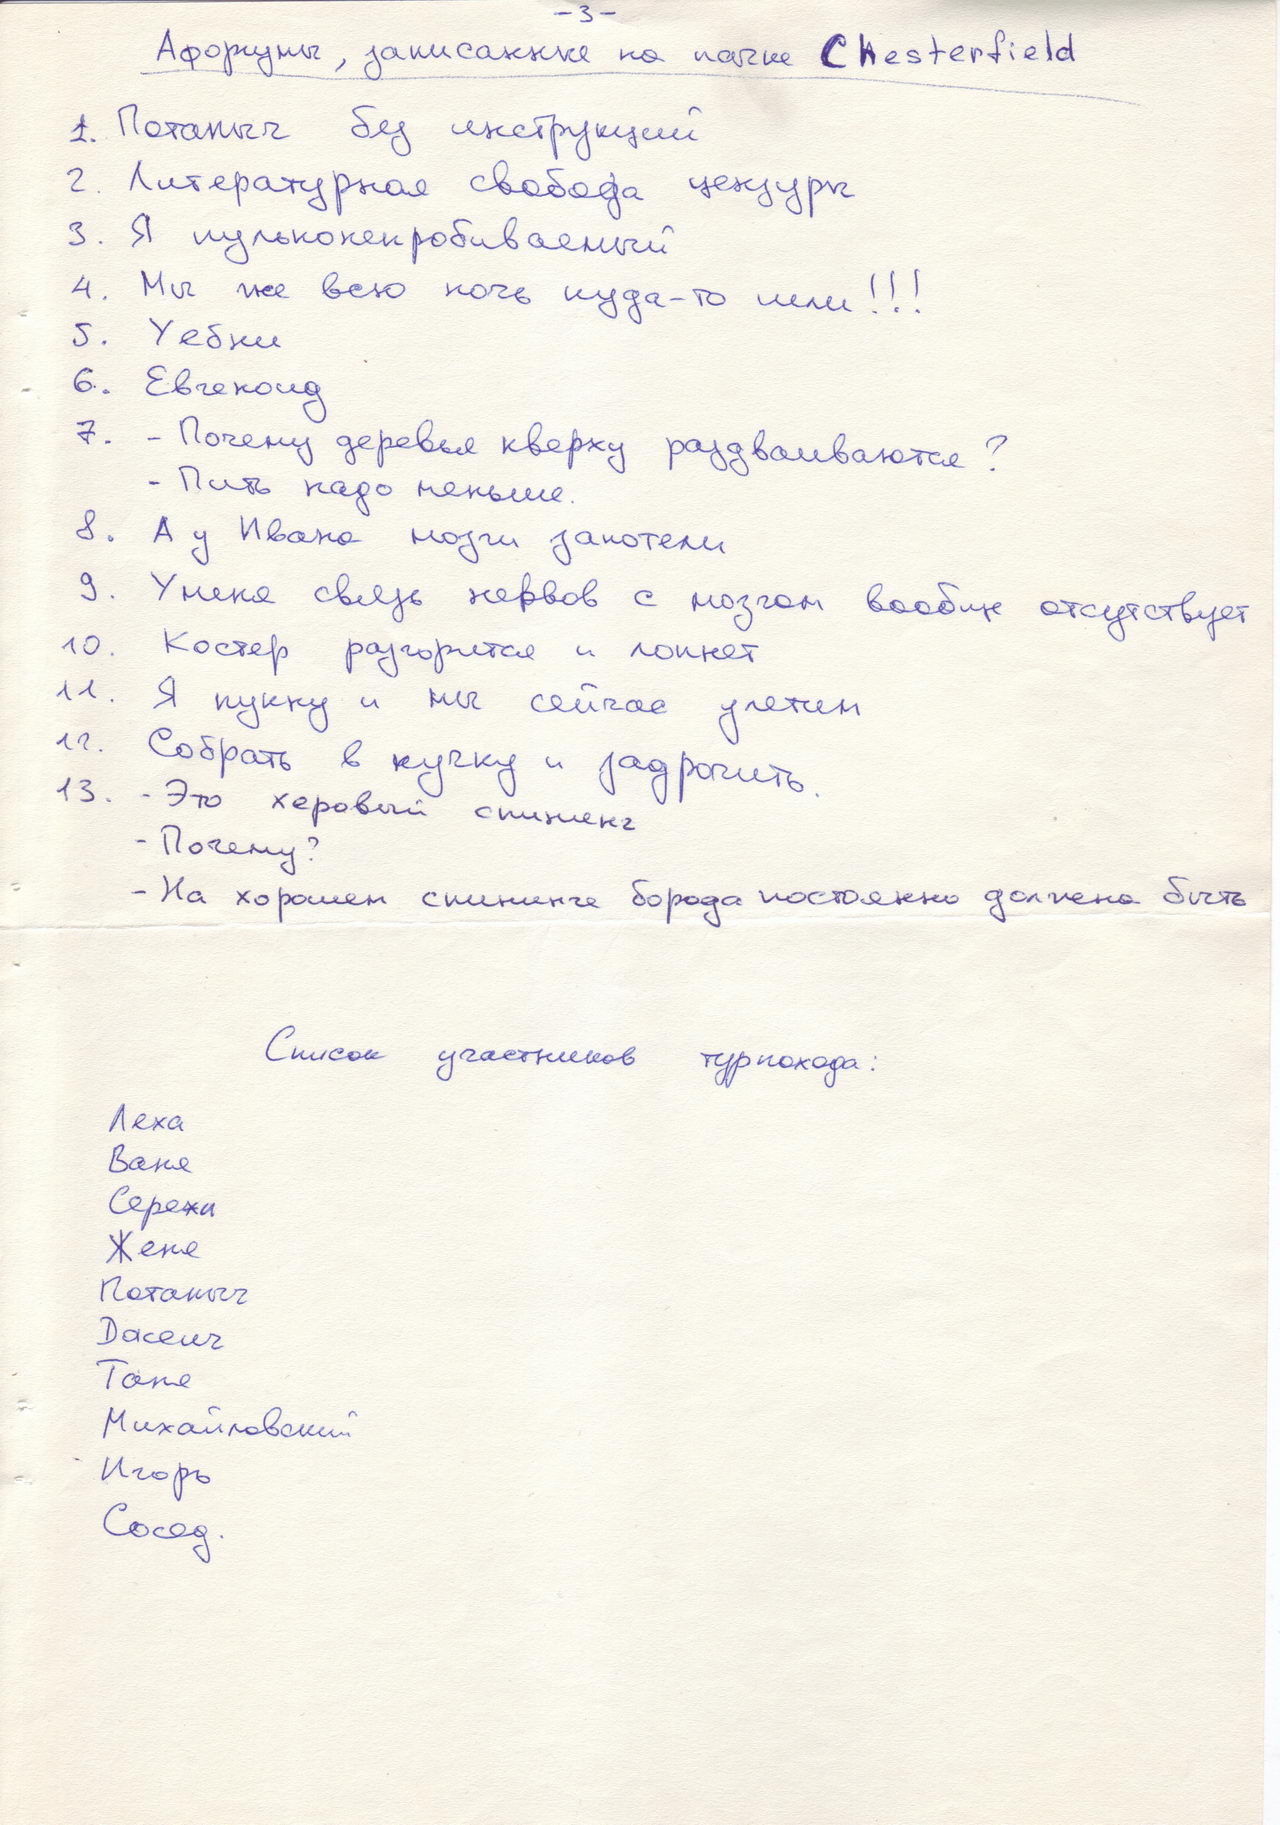 -3-
Афоризмы, записанные на пачке Chesterfield
1. Потапыч без инструкций
2. Литературная свобода цензуры
3. Я пульконепробиваемый
4. Мы же всю ночь куда-то шли!!!
5. Уебки
6. Евгеноид
7. - Почему деревья кверху раздваиваются?
- Пить надо меньше.
8. А у Ивана мозги запотели
9. У меня связь нервов с мозгом вообще отсутствует
10. Костер разгорится и лопнет
11. Я пукну и мы сейчас улетим
12. Собрать в кучку и задрочить.
13. - Это херовый спининг
- Почему?
- На хорошем спининге борода постоянно должна быть
Список участников турпохода:
Леха
Ваня
Сережи
Женя
Потапыч
Дасеич
Таня
Михайловский
Игорь
Сосед.